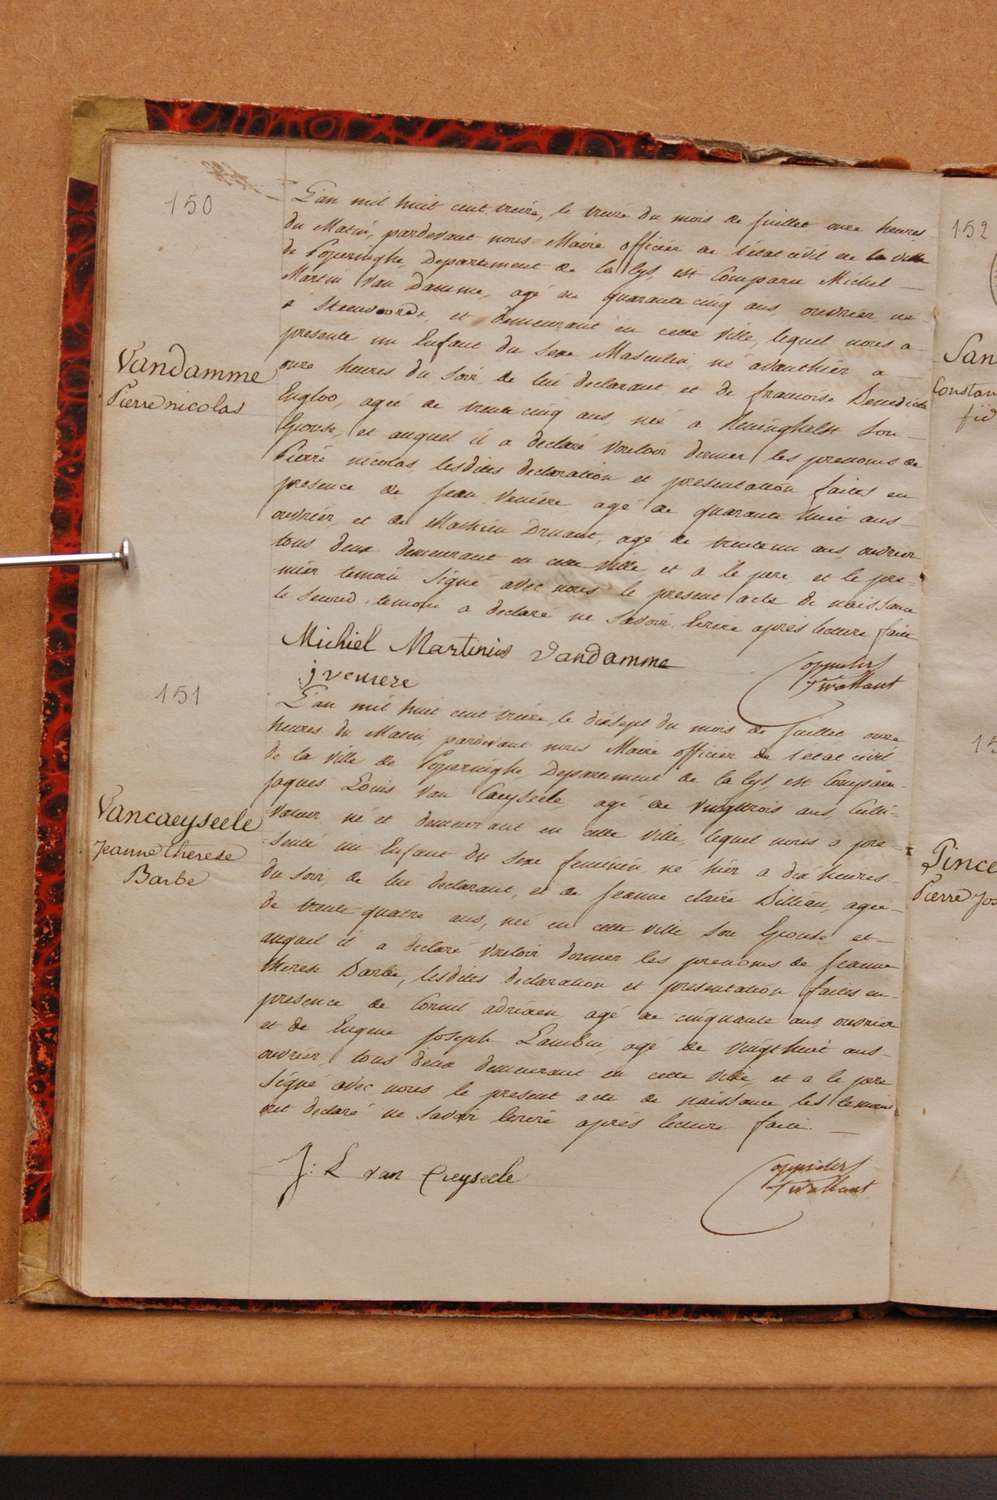 150
L'an mil huit cent treize, le treize du mois de juillet onze heures
du Matin, pardevant nous Maire officier de l'état civil de la ville
de Poperinghe, Departement de la Lys, est Comparu Michel
Martin Van Damme, agé de quarante cinq ans, ouvrier, né
a Steenvoorde, et demeurant en cette ville, lequel nous a
presente un Enfant du Sexe Masculin, né avanthier a
onze heures du Soir, de lui declarant et de francoise Benedicte
agée de trente cinq ans, née a Reninghelst Son
Epouse, et auquel il a declaré vouloir donner les prenoms de
Pierre nicolas, lesdites declaration et presentation faites en
presence de Jean Veniere agé de quarante huit ans
ouvrier, et de Mathieu Druant, agé de trenteun ans, ouvrier
tous deux demeurant en cette ville et a le pere et le pre-
mier temoin Signé avec nous le present acte de naissance
le Second temoin a declaré ne Savoir Ecrire après lecture faite
Vandamme
Pierre nicolas
Michiel Martinus Vandamme
j veniere
151
L'an mil huit cent treize le dixsept du mois de juillet onze
heures du Matin pardevant nous Maire officier de l'état civil
de la ville de Poperinghe Departement de la Lys, est Comparu
Jaques Louis Van Caeyseele agé de vingttrois ans, Culti-
vateur né et demeurant en cette ville, lequel nous a pre-
senté un Enfant du Sexe feminin né hier a dix heures
du Soir, de lui declarant, et de Jeanne claire Dillian, agée
de trente quatre ans, née en cette ville Son Epouse et
auquel il a declaré vouloir donner les prenoms de Jeanne
therese Barbe, lesdites declaration et presentation faites en
presence de Cornil adriaen agé de cinquante ans ouvrier
et de Eugene Joseph Lambin, agé de vingthuit ans
ouvrier, tous deux demeurant en cette ville et a le pere
Signé avec nous le present acte de naissance les temoins
ont declaré ne Savoir Ecrire après lecture faite.
Vancaeyseele
Jeanne therese
Barbe
J: L van Caeyseele
152
San
Constan
15
Pince
Pierre Jos